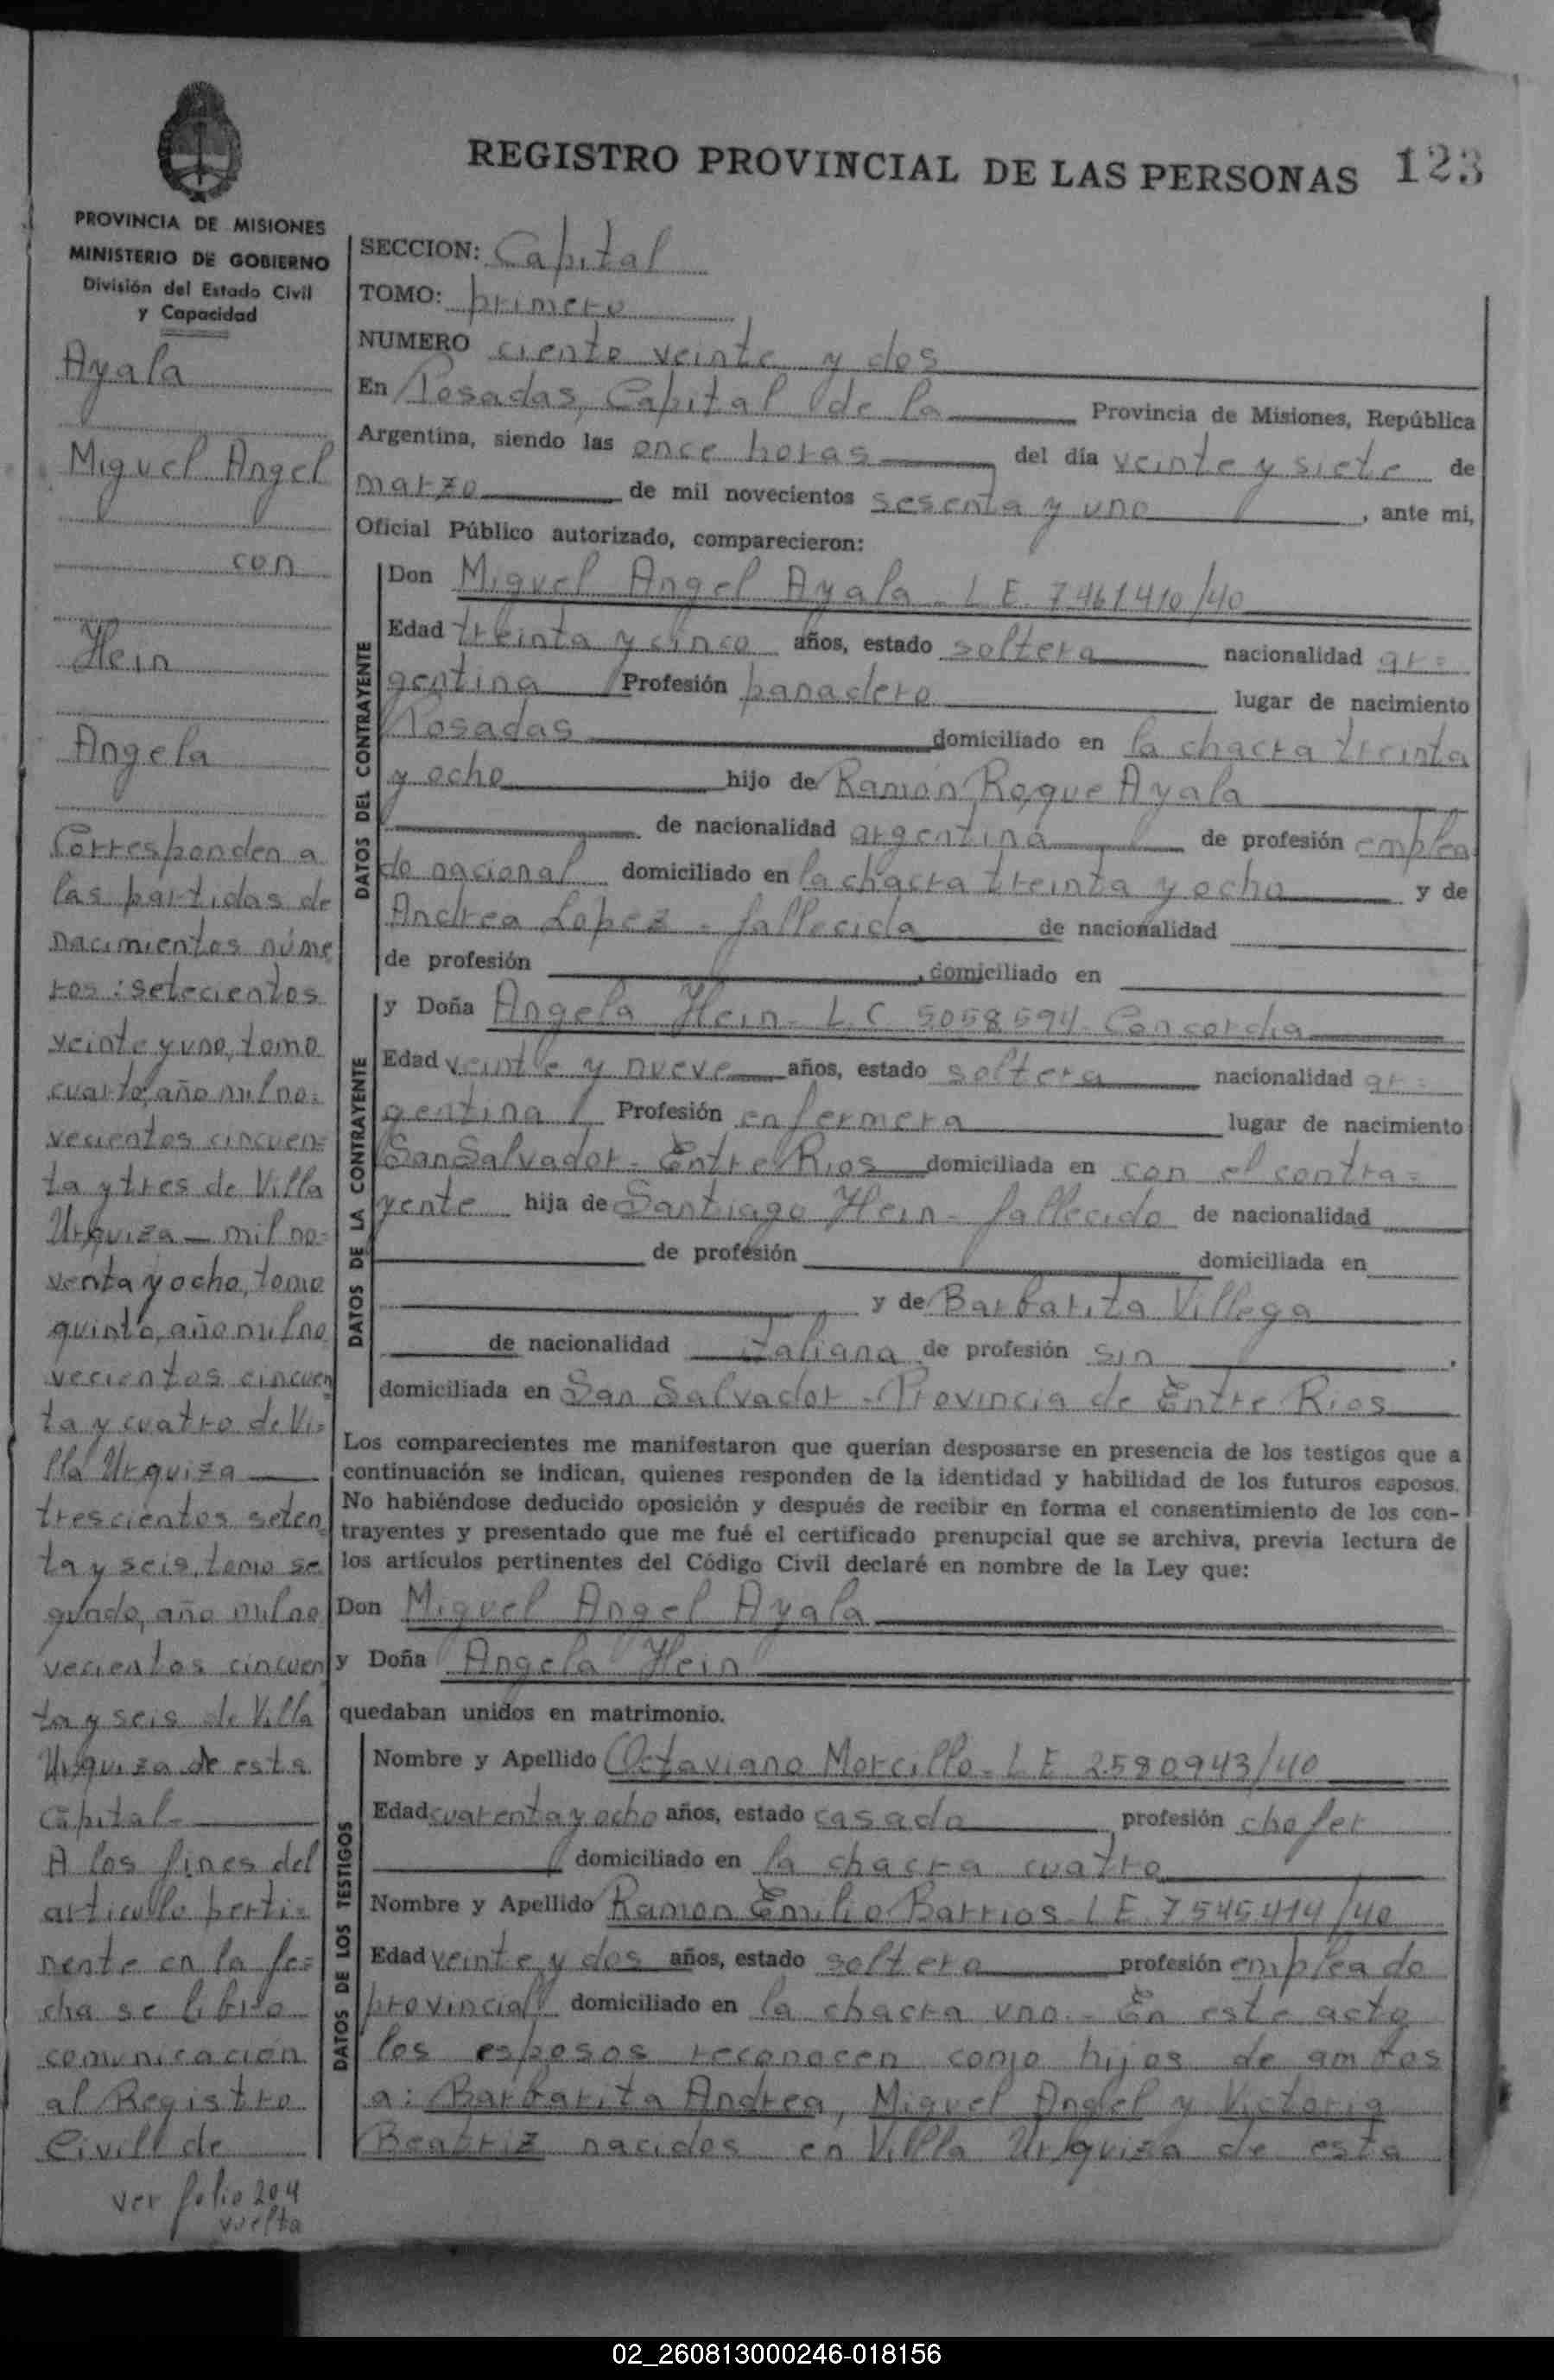 REGISTRO PROVINCIAL DE LAS PERSONAS 123
PROVINCIA DE MISIONES
MINISTERIO DE GOBIERNO
División del Estado Civil
y Capacidad
Ayala
Miguel Angel
con
Hein
Angela
Corresponden a
las partidas de
nacimientos núme
ros: setecientos
veinte y uno, tomo
cuarto, año mil no=
vecientos cincuen=
ta y tres de Villa
Urquiza — mil no=
venta y ocho, tomo
quinto, año mil no
vecientos cincuen
ta y cuatro de Vi=
lla Urquiza —
trescientos seten
ta y seis, tomo se
gundo, año mil no
vecientos cincuen
ta y seis de Villa
Urquiza de esta
Capital -
A los fines del
articulo perti=
nente en la fe=
cha se libro
comunicación
al Registro
Civil de
ver folio 204
vuelta
SECCION: Capital
TOMO: primero
NUMERO ciento veinte y dos
En Posadas, Capital de la Provincia de Misiones, República
Argentina, siendo las once horas del día veinte y siete de
marzo de mil novecientos sesenta y uno, ante mi,
Oficial Público autorizado, comparecieron:
DATOS DEL CONTRAYENTE
Don Miguel Angel Ayala - L E. 7.461.410/40
Edad treinta y cinco años, estado soltero nacionalidad ar=
gentina Profesión panadero lugar de nacimiento
Posadas domiciliado en la chacra treinta
y ocho hijo de Ramón Roque Ayala
de nacionalidad argentina de profesión emplea
do nacional domiciliado en la chacra treinta y ocho y de
Andrea Lopez - fallecida de nacionalidad
de profesión , domiciliado en
DATOS DE LA CONTRAYENTE
y Doña Angela Hein - L.C 5058594 Concordia
Edad veinte y nueve años, estado soltera nacionalidad ar=
gentina Profesión enfermera lugar de nacimiento
San Salvador - Entre Rios domiciliada en con el contra=
yente hija de Santiago Hein - fallecido de nacionalidad
de profesión domiciliada en
y de Barbarita Villega
de nacionalidad italiana de profesión sin .
domiciliada en San Salvador - Provincia de Entre Rios
Los comparecientes me manifestaron que querían desposarse en presencia de los testigos que a
continuación se indican, quienes responden de la identidad y habilidad de los futuros esposos.
No habiéndose deducido oposición y después de recibir en forma el consentimiento de los con-
trayentes y presentado que me fué el certificado prenupcial que se archiva, previa lectura de
los artículos pertinentes del Código Civil declaré en nombre de la Ley que:
Don Miguel Angel Ayala
y Doña Angela Hein
quedaban unidos en matrimonio.
DATOS DE LOS TESTIGOS
Nombre y Apellido Octaviano Morcillo - L E 2.580.943/40
Edad cuarenta y ocho años, estado casado profesión chofer
domiciliado en la chacra cuatro
Nombre y Apellido Ramon Emilio Barrios - L E. 7.545.414/40
Edad veinte y dos años, estado soltero profesión empleado
provincial domiciliado en la chacra uno. - En este acto
los esposos reconocen como hijos de ambos
a: Barbarita Andrea, Miguel Angel y Victoria
Beatriz nacidos en Villa Urquiza de esta
02_260813000246-018156